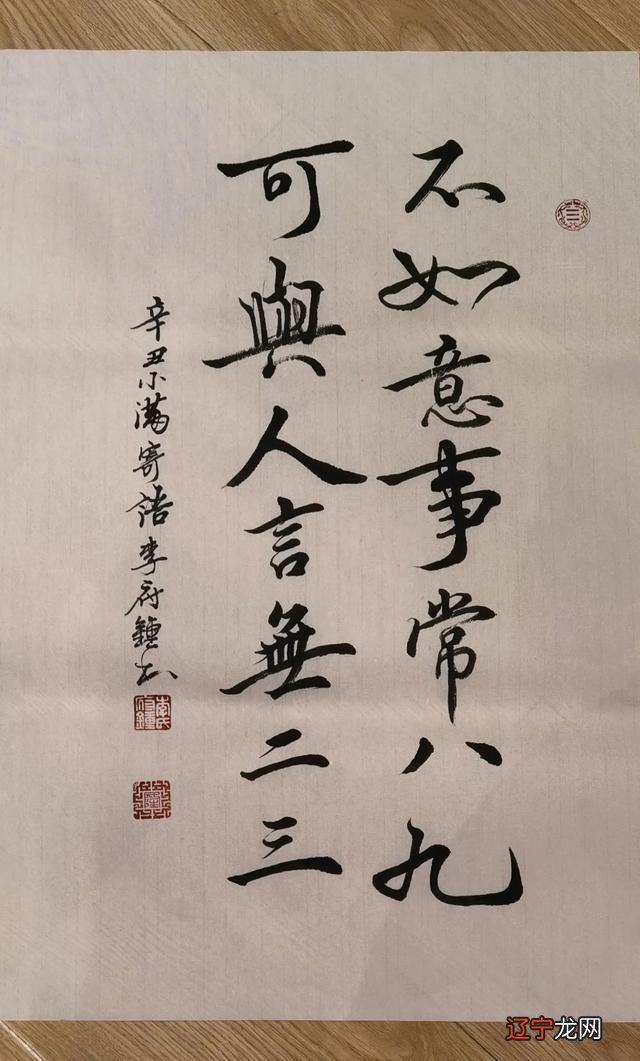 不如意事常八九
可與人言無二三
辛丑小滿寄語李府鍾书
李氏府鍾
辽宁龙网